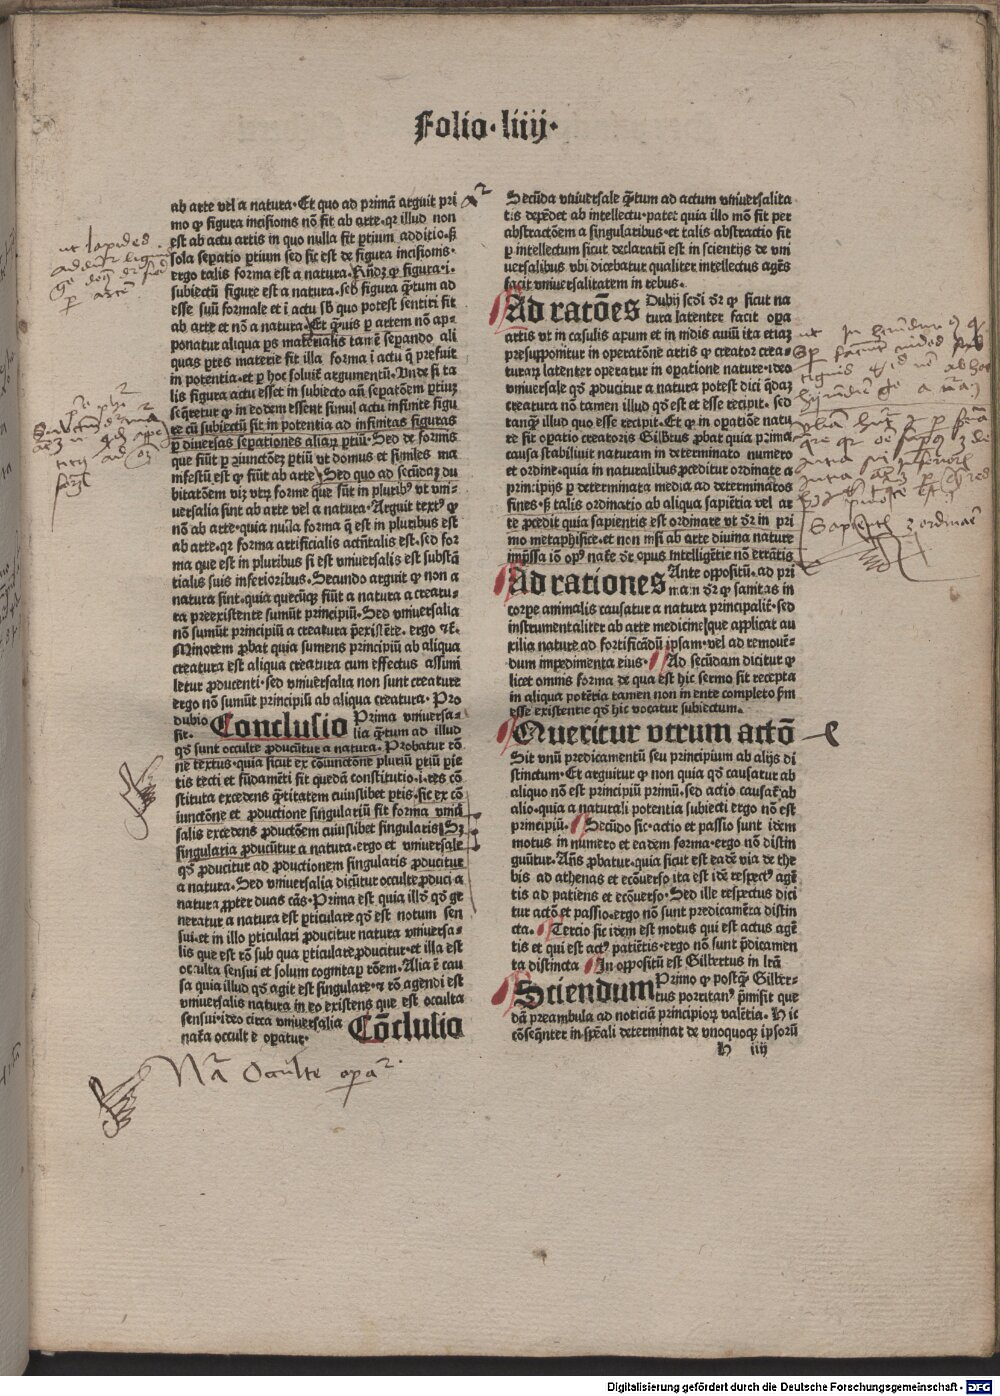 Folio·liiij·
ab arte vel a natura·Et quo ad primā arguit pri
mo ꝙ figura incisionis nō fit ab arte·qꝛ illud non
est ab actu artis in quo nulla fit ꝑtium additio·ꝫ
sola seꝑatio ꝑtium sed sic est de figura incisionis·
ergo talis forma est a natura· ꝙ figura·i·
subiectū figure est a natura·sed figura q̄tum ad
esse suū formale et i actu quo potest sentiri fit
ab arte et nō a natura·Et q̄uis ꝑ artem nō ap-
ponatur aliqua ꝑs materialis tamē seꝑando ali
quas ꝑtes materie fit illa forma i actu q̄ prefuit
in potentia·et ꝑ hoc soluit argumentū·Unde si ta
lis figura actu esset in subiecto añ seꝑatōem ꝑtium
seq̄retur ꝙ in eodem essent simul actu infinite figu
re cū subiectū sit in potentia ad infinitas figuras
ꝑ diuersas seꝑationes aliaꝝ ꝑtiū·Sed de formis
que fiūt ꝑ ꝯiunctōeꝫ ꝑtiū vt domus et similes ma
nifestū est ꝙ fiūt ab arte·Sed quo ad secūdaꝫ du
bitatōem viꝫ vtꝝ forme que sūt in pluribꝰ vt vni-
uersalia sint ab arte vel a natura·Arguit textꝰ ꝙ
nō ab arte·quia nulla forma q̄ est in pluribus est
ab arte·qꝛ forma artificialis actn̄talis est·sed for
ma que est in pluribus si est vniuersalis est substā
tialis suis inferioribus·Secundo arguit ꝙ non a
natura sint·quia quecūqꝫ fiūt a natura a creatu-
ra preexistente sumūt principiū·Sed vniuersalia
nō sumūt principiū a creatura p̄existēte· ergo ⁊c̄·
Minorem ꝓbat quia sumens principiū ab aliqua
creatura est aliqua creatura cum effectus assimi
letur ꝓducenti·sed vniuersalia non sunt creature
ergo nō sumūt principiū ab aliqua creatura· Pro
dubio Conclusio Prima vniuersa-
sit· lia q̄tum ad illud
qꝫ sunt occulte ꝓducūtur a natura·Probatur rō
ne textus·quia sicut ex cōiunctōne pluriū ꝑtiū ꝑie
tis tecti et fūdamēti fit quedā constitutio·i·res cō
stituta excedens q̄titatem cuiuslibet ꝑtis·sic ex cō
iunctōne et ꝓductione singulariū fit forma vniū
salis excedens ꝓductōem cuiuslibet singularis·Sꝫ
singularia ꝓducūtur a natura·ergo et vniuersale
qꝫ ꝓducitur ad ꝓductionem singularis ꝓducitur
a natura·Sed vniuersalia dicūtur occulte ꝓduci a
natura ꝓpter duas cās·Prima est quia illd qꝫ ge
neratur a natura est ꝑticulare qꝫ est notum sen
sui·et in illo ꝑticulari ꝓducitur natura vniuersa-
lis que est rō sub qua ꝑticulare ꝓducitur·et illa est
occulta sensui et solum cognita ꝑ rōem·Alia ē cau
sa quia illud qꝫ agit est singulare·⁊ rō agendi est
vniuersalis natura in eo existens que est occulta
sensui·ideo circa vniuersalia Cōclusio
nat̄a occulte oꝑatur·
Secūda vniuersale q̄tum ad actum vniuersalita
tis depēdet ab intellectu·patet quia illo mō fit per
abstractōem a singularibus·et talis abstractio fit
ꝑ intellectum sicut declaratū est in scientijs de vni
uersalibus vbi dicebatur qualiter intellectus agēs
facit vniuersalitatem in rebus·
Ad ratōes Dubij scdi dꝛ ꝙ sicut na
tura latenter facit oꝑa
artis vt in casulis apum et in nidis auiū ita etiaꝫ
presupponitur in operatōne artis ꝙ creator crea-
turaꝝ latenter operatur in oꝑatione nature·ideo
vniuersale qꝫ ꝓducitur a natura potest dici q̄daꝫ
creatura nō tamen illud qꝫ est et esse recipit· sed
tanq̄ illud quo esse recipit·Et ꝙ in oꝑatiōe natu
re fit oꝑatio creatoris Gilbtus ꝓbat quia prima
causa stabiliuit naturam in determinato numero
et ordine·quia in naturalibus ꝓceditur ordinate a
principijs ꝑ determinata media ad determinatos
fines·ꝫ talis ordinatio ab aliqua sapiētia vel ar
te ꝓcedit quia sapientis est ordinare vt dꝛ in pri
mo metaphisice·et non nisi ab arte diuina nature
imp̄ssa iō opꝰ nat̄e dꝛ opus intelligētie nō errātis
Ad rationes Ante oppositū·ad pri
mam dꝛ ꝙ sanitas in
corpe animalis causatur a natura principalit̄·sed
instrumentaliter ab arte medicine que applicat au
xilia nature ad fortificādū ipsam·vel ad remouē-
dum impedimenta eius· Ad secūdam dicitur ꝙ
licet omnis forma de qua est hic sermo sit recepta
in aliqua potētia tamen non in ente completo ẜm
esse existentie qꝫ hic vocatur subiectum·
Queritur vtrum actō
Sit vnū predicamentū seu principium ab alijs di
stinctum·Et arguitur ꝙ non quia qꝫ causatur ab
aliquo nō est principiū primū·sed actio causat̄ ab
alio·quia a naturali potentia subiecti ergo nō est
principiū· Secūdo sic·actio et passio sunt idem
motus in numero et eadem forma·ergo nō distin
guūtur·Añs ꝓbatur·quia sicut est eadē via de the
bis ad athenas et ecōuerso ita est idē respectꝰ agē
tis ad patiens et ecōuerso·Sed ille respectus dici
tur actō et passio·ergo nō sunt predicamēta distin
cta· Tercio sic idem est motus qui est actus agē
tis et qui est actꝰ patiētis·ergo nō sunt p̄dicamen
ta distincta In oppositū est Gilbertus in lr̄a
Sciendum Primo ꝙ postq̄ Gilber-
tus porritanꝰ p̄misit que
dā preambula ad noticiā principioꝝ valētia· Hic
cōseq̄nter in sp̄ali determinat de vnoquoqꝫ ipsorū
H iiij
ut lapides
Digitalisierung gefördert durch die Deutsche Forschungsgemeinschaft · DFG